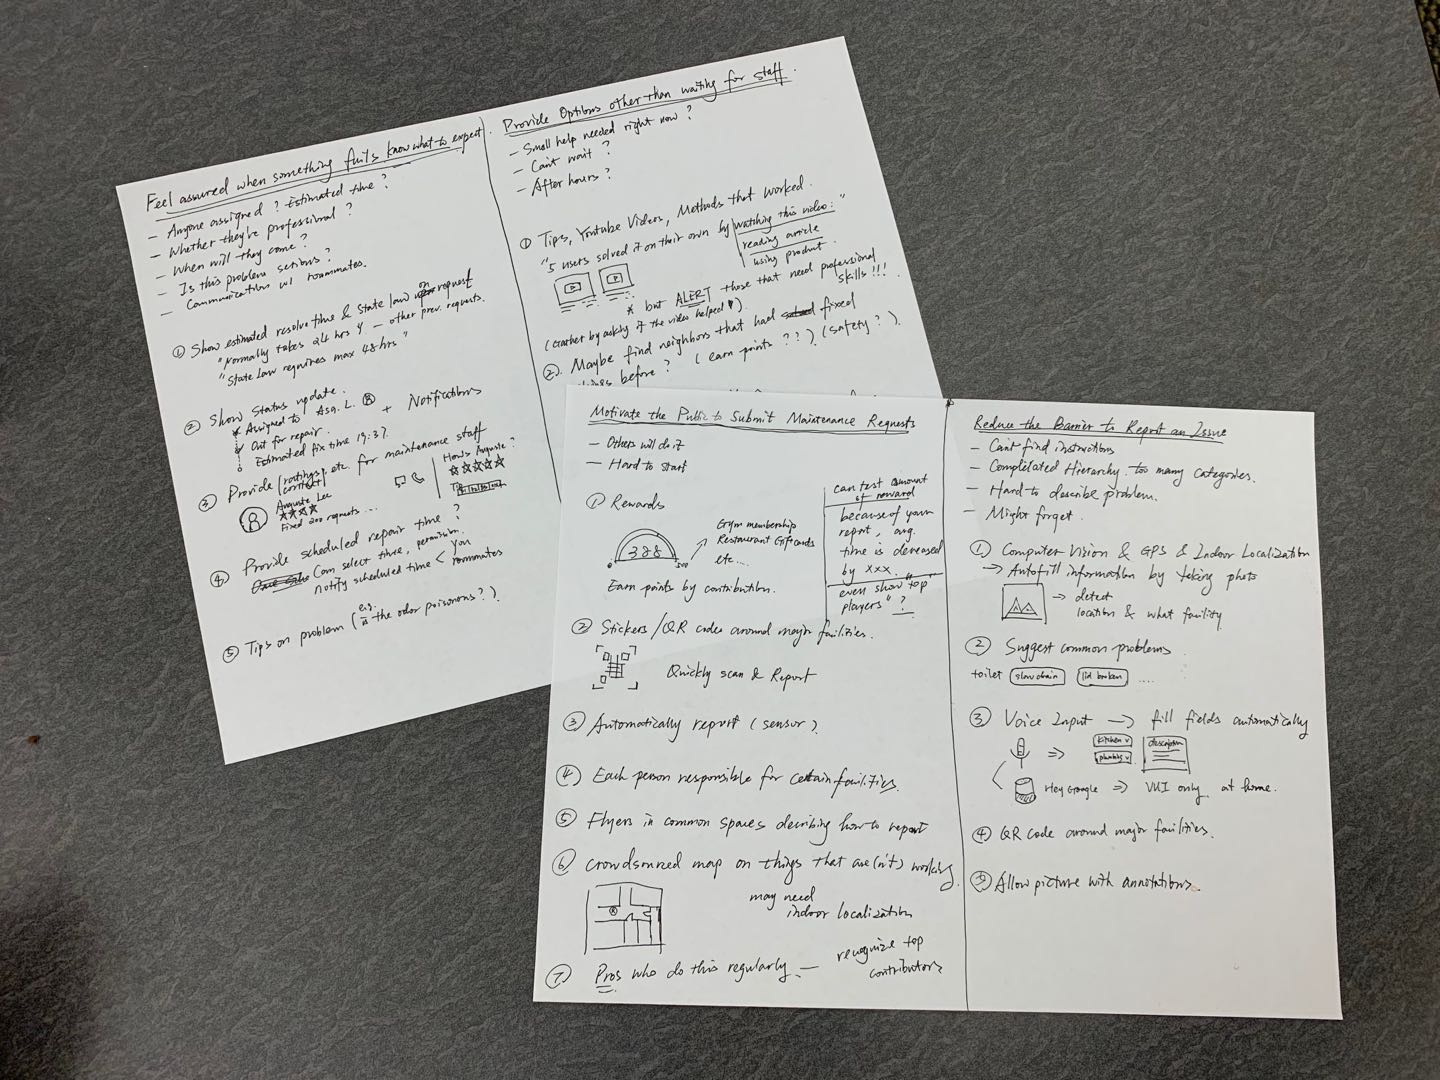 Feel assured when something fails (know what to expect).
- Anyone assigned? Estimated time?
- Whether they're professional?
- When will they come?
- Is this problem serious?
- Communication w/ roommates.
① Show estimated resolve time & state law on request
"normally takes 24 hrs" - other prev. requests.
"State law requires max 48 hrs"
② Show Status update. + Notifications
Assigned to
Out for repair.
Estimated fix time 19:37.
③ Provide etc. for maintenance staff
contact
Fixed 200 requests...
④ Provide scheduled repair time?
(Can select time, permission.
notify scheduled time < you
roommates
⑤ Tips on problem (e.g.
is the odor poisonous?)
Provide Options other than waiting for staff.
- Small help needed right now?
- Can't wait?
- After hours?
① Tips, Youtube Videos, Methods that worked.
"5 users solved it on their own by watching this video."
reading article
using product
* but ALERT those that need professional skills!!!
(Gather by asking if the video helped)
②. Maybe find neighbors that had fixed
before? (earn points???) (safety?)
Motivate the Public to Submit Maintenance Requests
- Others will do it
- Hard to start
① Rewards
328
0
500
Gym membership
Restaurant Giftcards
etc...
Earn points by contribution.
can test amount
of reward
because of your
report, avg.
time is decreased
by xxx.
even show top
players"?
② Stickers / QR codes around major facilities.
Quickly scan & Report
③ Automatically report (sensor?
④ Each person responsible for certain facilities.
⑤ Flyers in common spaces describing how to report
⑥ Crowdsourced map on things that are(n't) working.
may need
indoor localization
⑦ Pros who do this regularly. — recognize top
contributors
Reduce the Barrier to Report an Issue
- Can't find instructions
- Complicated Hierarchy, too many categories.
- Hard to describe problem.
- Might forget.
① Computer Vision & GPS & Indoor Localization
→ Autofill information by taking photo
→ detect
location & what facility
② Suggest common problems.
toilet slow drain lid broken ...
③ Voice Input → fill fields automatically
⇒ Kitchen v
plumbing v
description
Hey Google ⇒ VUI only at home.
④ QR code around major facilities.
⑤ Allow picture with annotations.